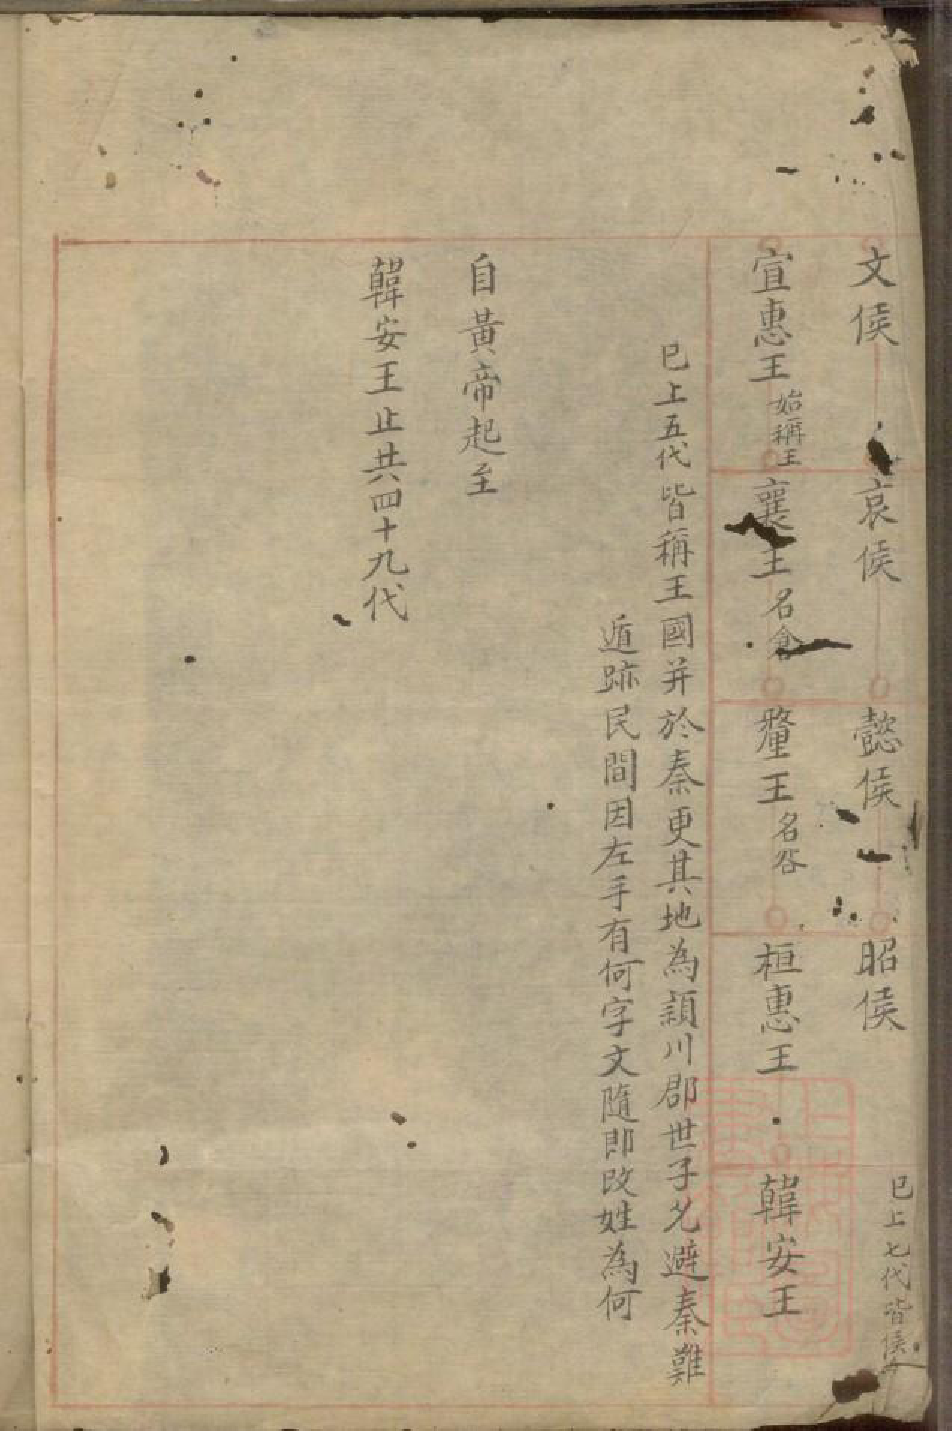 文侯 哀侯 懿侯 昭侯 已上七代皆侯
宣惠王 始稱王 襄王 名倉 釐王 名咎 桓惠王 韓安王
已上五代皆稱王國并於秦更其地為潁川郡世子允避秦難
遁跡民間因左手有何字文隨即改姓為何
自黃帝起至
韓安王止共四十九代